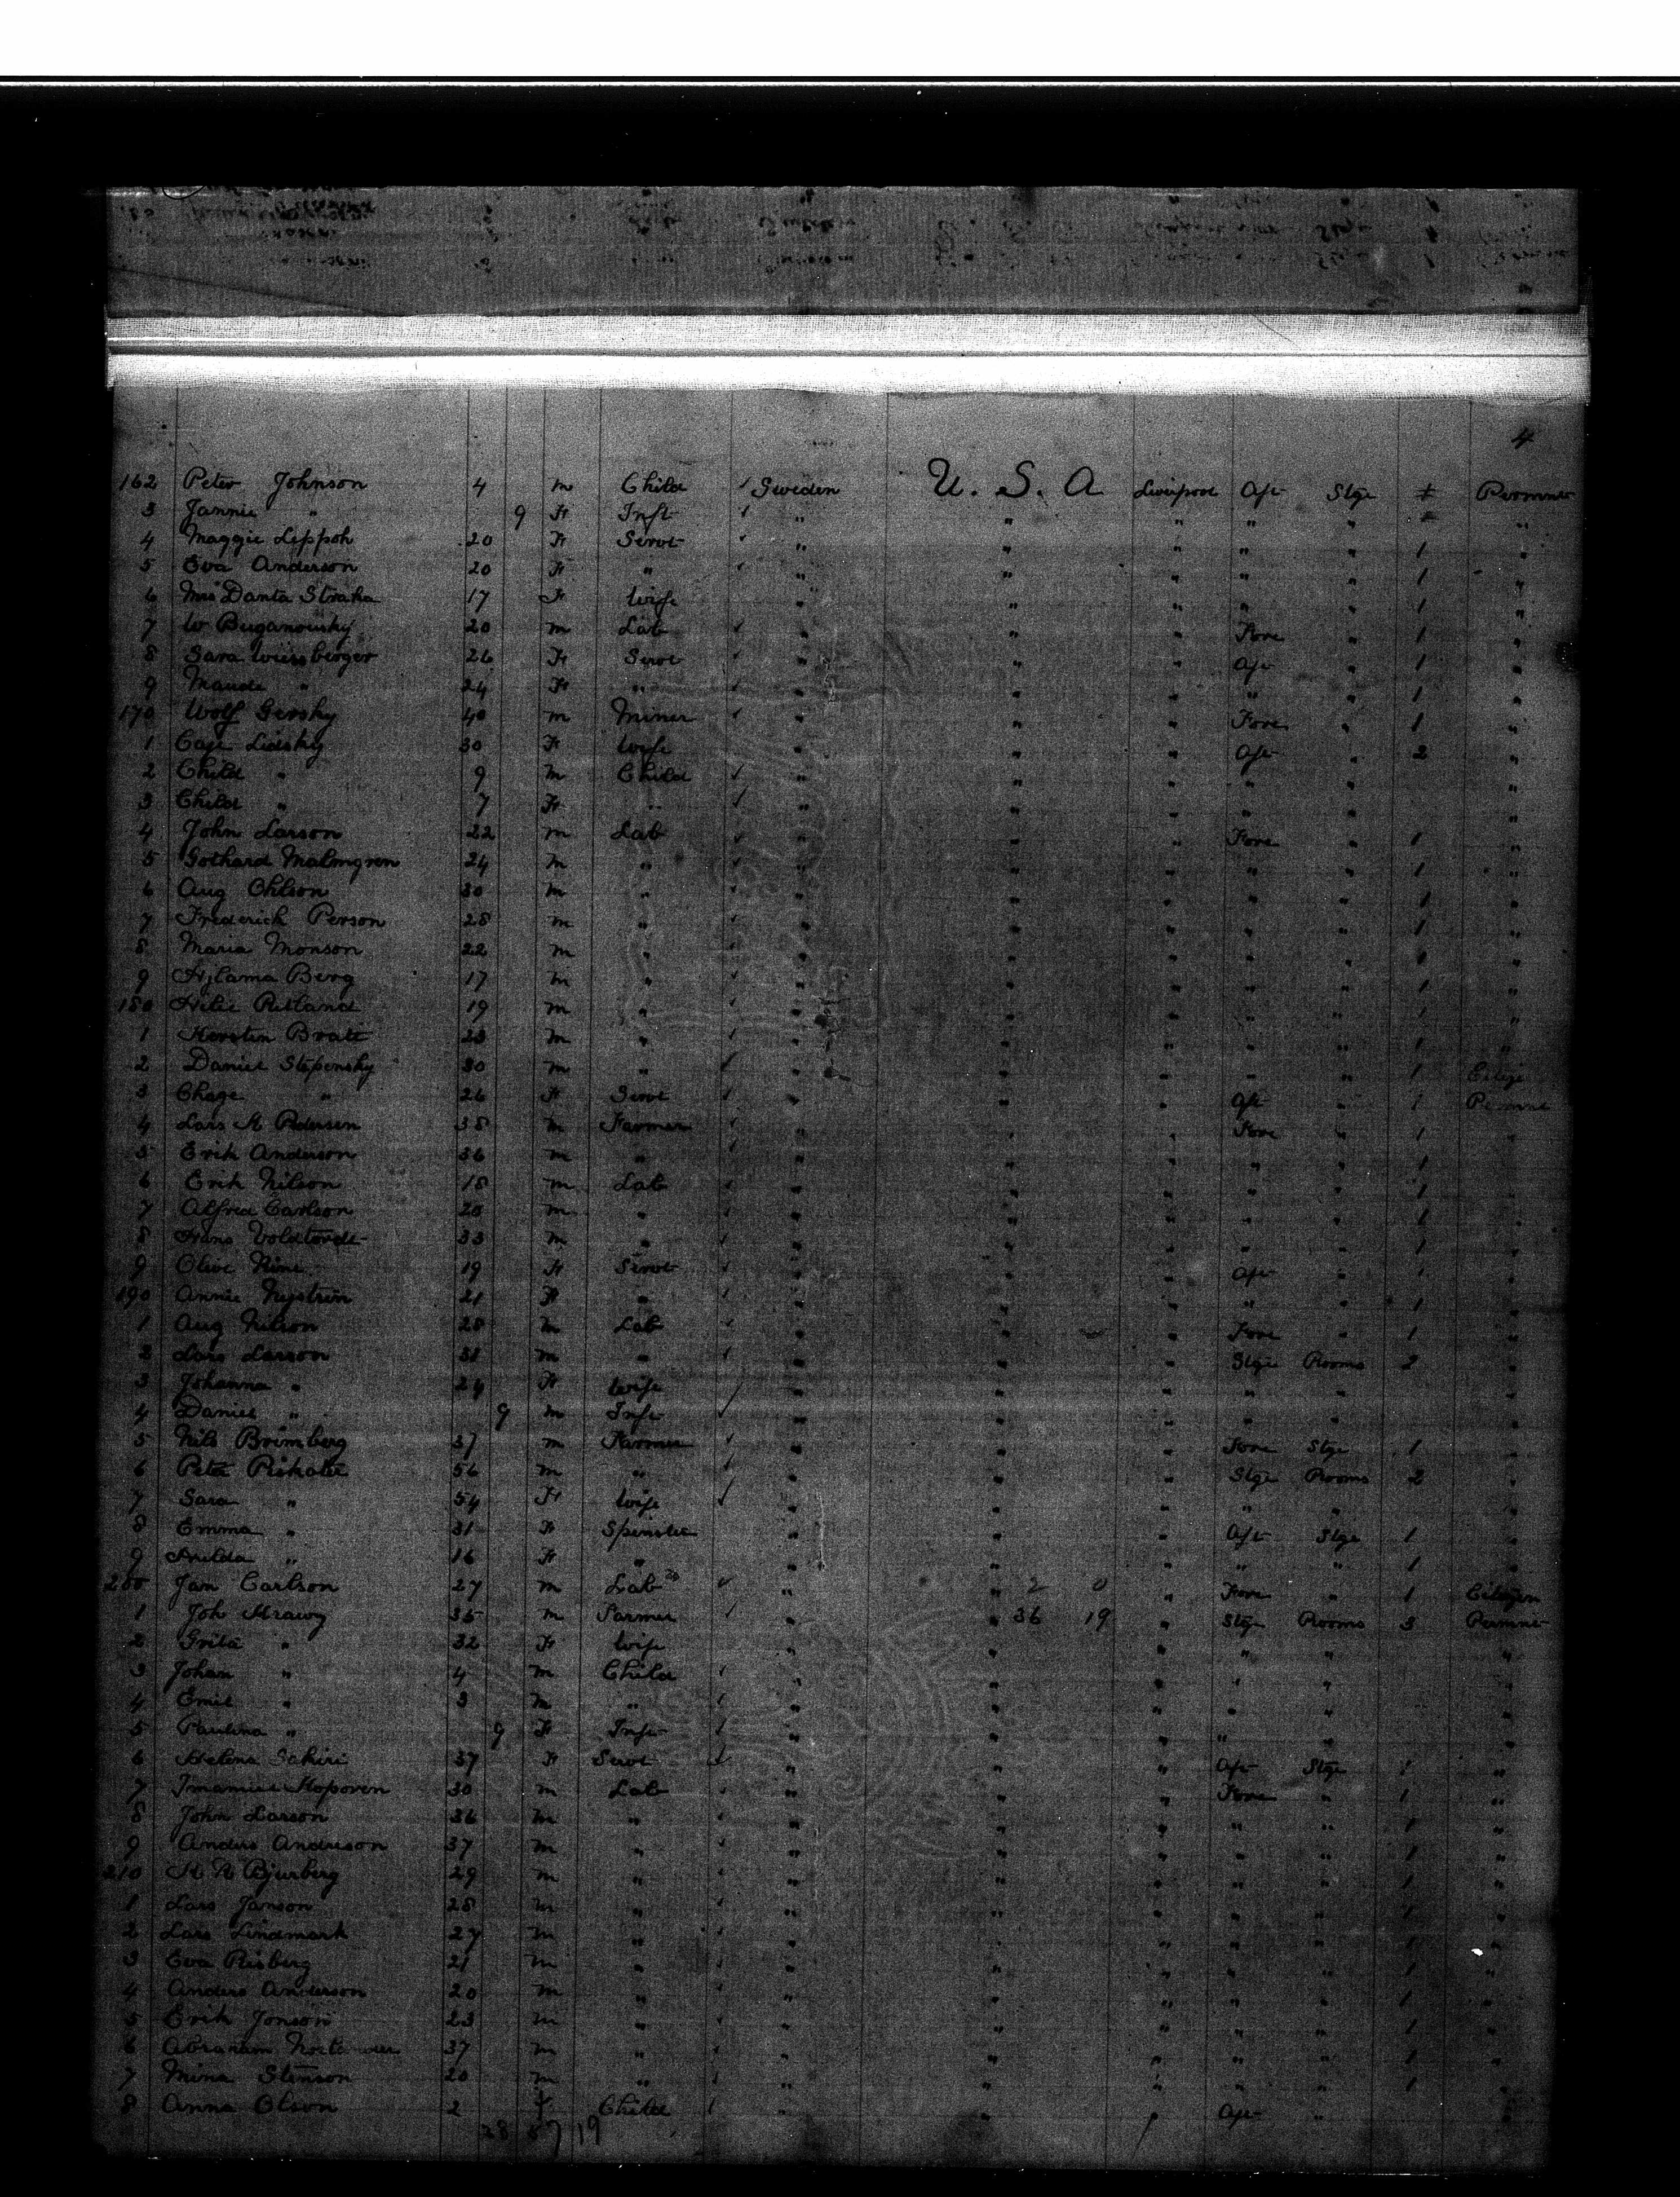 4
162 Peter Johnson 4 m Child ✓ Sweden U. S. A Liverpool Aft Stge
3 Jannie " 9 F Inft ✓ " " " " "
4 Maggie Leppoh 20 F Servt ✓ " " " " " 1 "
5 Eva Anderson 20 F " ✓ " " " " " 1 "
6 Mrs Danta Straka 17 F Wife " " " " " 1 "
7 W Buganowsky 20 m Lab ✓ " " " Fore " 1 "
8 Sara Wiessberger 26 F Servt ✓ " " " Aft " 1 "
9 Maude " 24 F " ✓ " " " " " 1 "
170 Wolf Gershy 40 m Miner ✓ " " " Fore " 1 "
1 30 F Wife " " " Aft " 2 "
2 Child " 9 m Child ✓ " " " " " "
3 Child " 7 F " ✓ " " " " " "
4 John Larson 22 m Lab ✓ " " " Fore " 1 "
5 Gothard Malmgren 24 m " ✓ " " " " " 1 "
6 Aug Ohlson 30 m " ✓ " " " " " 1 "
7 Frederick Person 28 m " ✓ " " " " " 1 "
8 Maria Monson 22 m " ✓ " " " " " 1 "
9 Hjlama Berg 17 m " ✓ " " " " " 1 "
180 19 m " ✓ " " " " " 1 "
1 Kerstin Bratt 23 m " ✓ " " " " " 1 "
2 Daniel Stepensky 30 m " ✓ " " " " " 1
3 Chage " 26 F Servt ✓ " " " Aft " 1
4 Lars Pedersen 38 m Farmer ✓ " " " Fore " 1 "
5 Erik Anderson 36 m " ✓ " " " " " 1 "
6 Erik Nilson 18 m Lab ✓ " " " " " 1 "
7 Alfred Carlson 20 m " ✓ " " " " " 1 "
8 Hans 33 m " ✓ " " " " " 1 "
9 Olive 19 F Servt ✓ " " " Aft " 1 "
190 Annie 21 F " ✓ " " " " " 1 "
1 Aug Nilson 28 m Lab ✓ " " " Fore " 1 "
2 Lars Larson 31 m " ✓ " " " Stge Rooms 2 "
3 Johanna " 24 F Wife ✓ " " " " " "
4 Daniel " 9 m Inft ✓ " " " " " "
5 Nils Brimberg 37 m Farmer ✓ " " " Fore Stge 1 "
6 Peter 56 m " ✓ " " " Stge Rooms 2 "
7 Sara " 54 F Wife ✓ " " " " " "
8 Emma " 31 F Spinster " " " Aft Stge 1 "
9 " 16 F " " " " " " 1 "
200 Jan Carlson 27 m Lab ✓ " " 2 0 " Fore " 1 Citizen
1 Joh 35 m Farmer ✓ " " 36 19 " Stge Rooms 3
2 Grita " 32 F Wife " " " " " "
3 Johan " 4 m Child ✓ " " " " " "
4 Emil " 3 m " ✓ " " " " " "
5 Paulina " 9 F Inft ✓ " " " " "
6 Helena 37 F Servt ✓ " " " Aft Stge 1 "
7 30 m Lab ✓ " " " Fore " 1 "
8 John Larson 36 m " ✓ " " " " " 1 "
9 Anders Anderson 37 m " ✓ " " " " " 1 "
210 Bjurberg 29 m " ✓ " " " " " 1 "
1 Lars Janson 28 m " ✓ " " " " " 1 "
2 Lars Lindmark 27 m " ✓ " " " " " 1 "
3 Eva Risberg 21 m " ✓ " " " " " 1 "
4 Anders Anderson 20 m " ✓ " " " " " 1 "
5 Erik Jonson 23 m " " " " " " 1 "
6 Abraham 37 m " ✓ " " " " " 1 "
7 Mina Stenson 20 m " ✓ " " " " " 1 "
8 Anna Olson 2 f Child ✓ " " " Aft " "